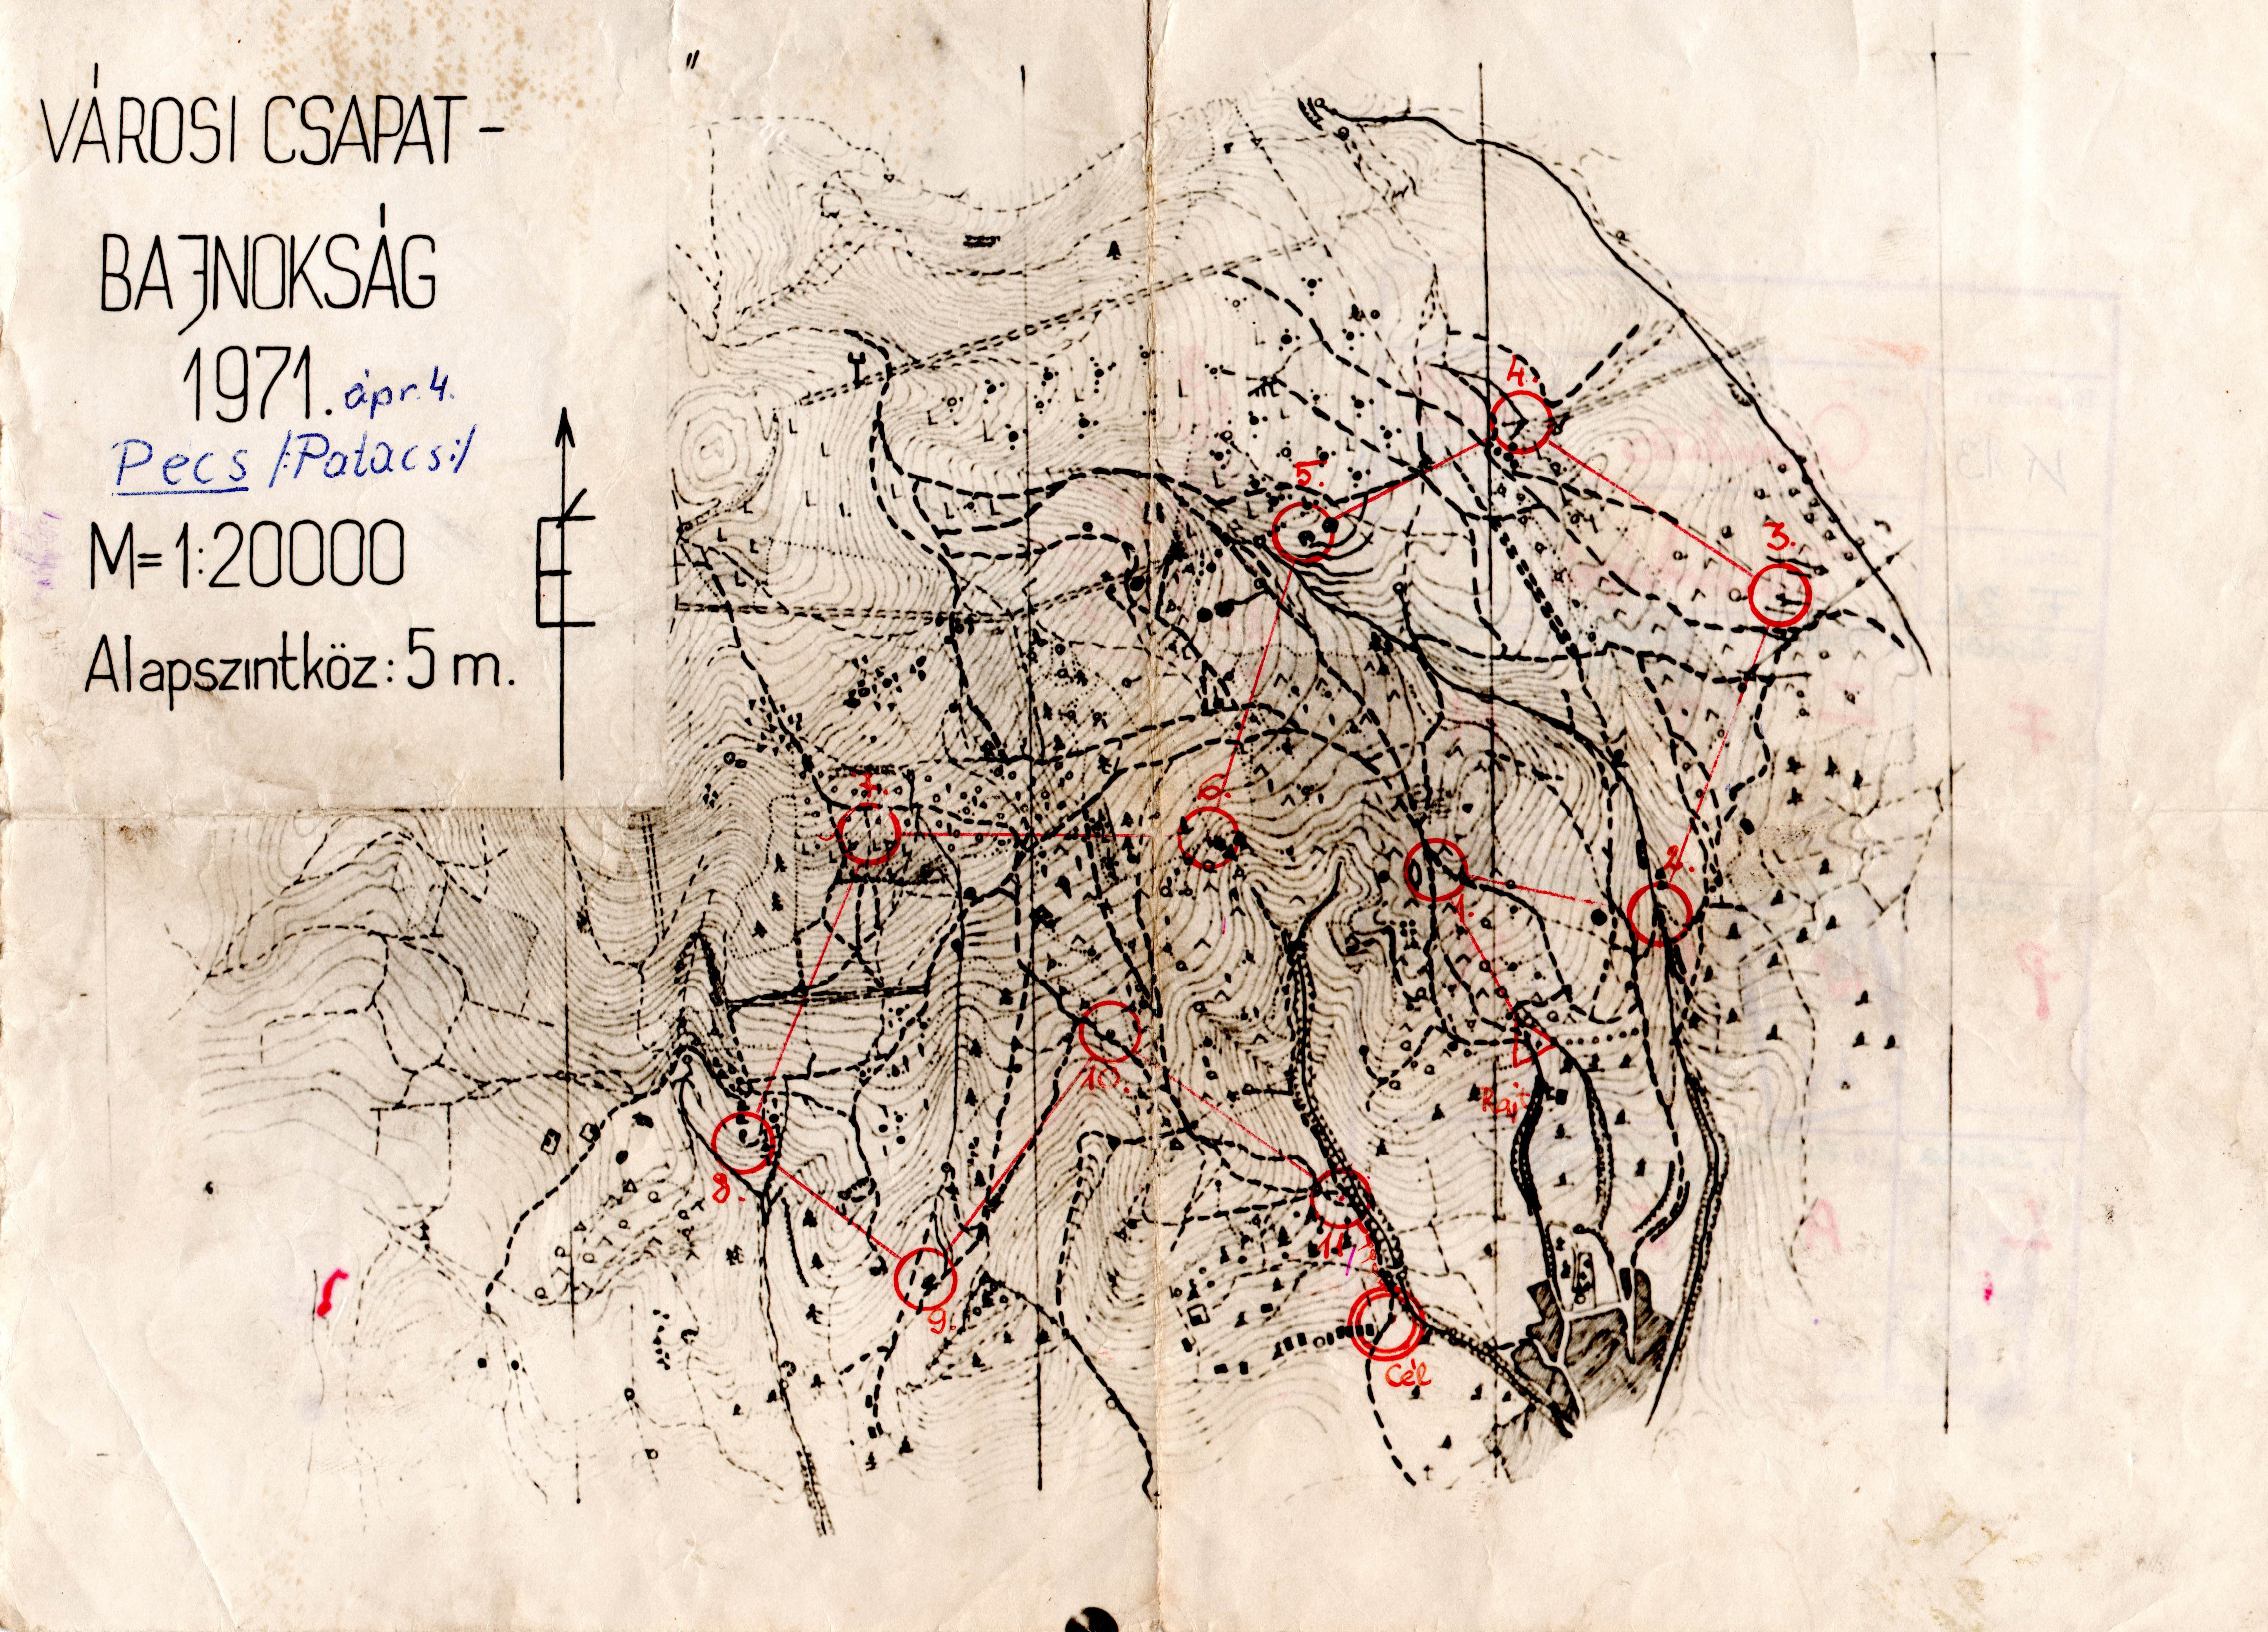 VÁROSI CSAPAT-
BAJNOKSÁG
1971. ápr. 4.
Pécs /:Patacs:/
M=1:20000
Alapszintköz: 5 m.
4.
5.
3.
6.
7.
2.
1.
10.
Rajt
8.
11.
9.
Cél